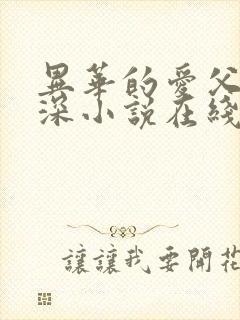 異華的愛父
深小說在綫
讓讓我要開花